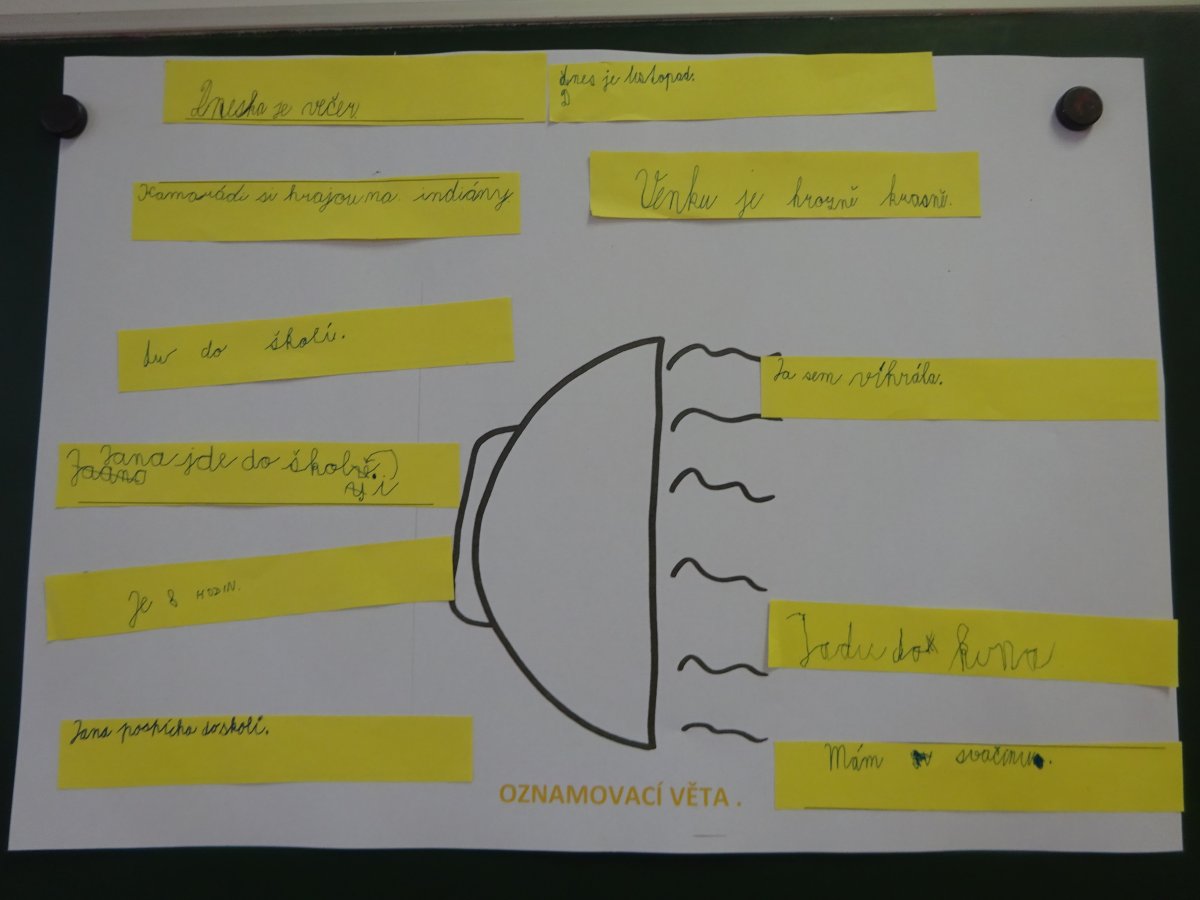 Dneska je večer
dnes je listopad.
D
Kamarádi si hrajou na indiány
Venku je hrozně krasně.
du do školi.
Ja sem víhrála.
Jana jde do školi
Je 8 HODIN.
Jadu do kina
Jana pospícha do skolí.
Mám svačinu.
OZNAMOVACÍ VĚTA .